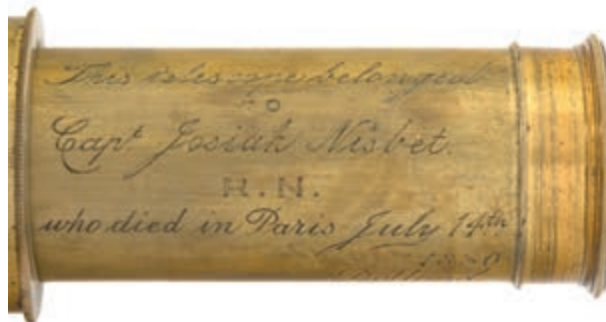 This telescope belonged
to
Capt Josiah Nisbet.
R.N.
who died in Paris July 14th